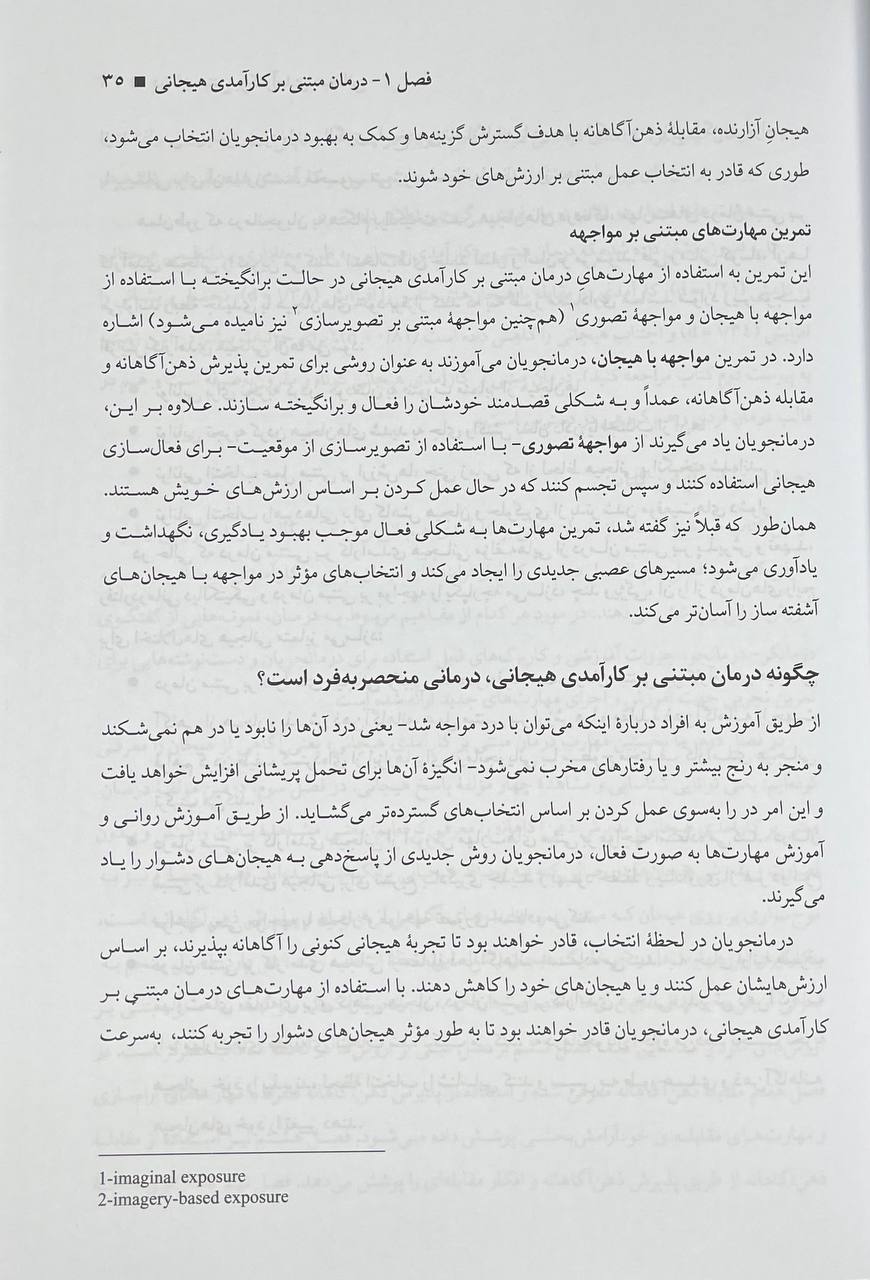 فصل ۱- درمان مبتنی بر کارآمدی هیجانی ■ ۳۵
هیجانِ آزارنده، مقابلهٔ ذهن‌آگاهانه با هدف گسترش گزینه‌ها و کمک به بهبود درمانجویان انتخاب می‌شود،
طوری که قادر به انتخاب عمل مبتنی بر ارزش‌های خود شوند.
تمرین مهارت‌های مبتنی بر مواجهه
این تمرین به استفاده از مهارت‌هایِ درمان مبتنی بر کارآمدی هیجانی در حالت برانگیخته با استفاده از
مواجهه با هیجان و مواجههٔ تصوری۱ (هم‌چنین مواجههٔ مبتنی بر تصویرسازی۲ نیز نامیده می‌شود) اشاره
دارد. در تمرین مواجهه با هیجان، درمانجویان می‌آموزند به عنوان روشی برای تمرین پذیرش ذهن‌آگاهانه و
مقابله ذهن‌آگاهانه، عمداً و به شکلی قصدمند خودشان را فعال و برانگیخته سازند. علاوه بر این،
درمانجویان یاد می‌گیرند از مواجههٔ تصوری- با استفاده از تصویرسازی از موقعیت- برای فعال‌سازی
هیجانی استفاده کنند و سپس تجسم کنند که در حال عمل کردن بر اساس ارزش‌های خویش هستند.
همان‌طور که قبلاً نیز گفته شد، تمرین مهارت‌ها به شکلی فعال موجب بهبود یادگیری، نگهداشت و
یادآوری می‌شود؛ مسیرهای عصبی جدیدی را ایجاد می‌کند و انتخاب‌های مؤثر در مواجهه با هیجان‌های
آشفته ساز را آسان‌تر می‌کند.
چگونه درمان مبتنی بر کارآمدی هیجانی، درمانی منحصربه‌فرد است؟
از طریق آموزش به افراد دربارهٔ اینکه می‌توان با درد مواجه شد- یعنی درد آن‌ها را نابود یا در هم نمی‌شکند
و منجر به رنج بیشتر و یا رفتارهای مخرب نمی‌شود- انگیزهٔ آن‌ها برای تحمل پریشانی افزایش خواهد یافت
و این امر در را به‌سوی عمل کردن بر اساس انتخاب‌های گسترده‌تر می‌گشاید. از طریق آموزش روانی و
آموزش مهارت‌ها به صورت فعال، درمانجویان روش جدیدی از پاسخ‌دهی به هیجان‌های دشوار را یاد
می‌گیرند.
درمانجویان در لحظهٔ انتخاب، قادر خواهند بود تا تجربهٔ هیجانی کنونی را آگاهانه بپذیرند، بر اساس
ارزش‌هایشان عمل کنند و یا هیجان‌های خود را کاهش دهند. با استفاده از مهارت‌های درمان مبتنی بر
کارآمدی هیجانی، درمانجویان قادر خواهند بود تا به طور مؤثر هیجان‌های دشوار را تجربه کنند، به‌سرعت
1-imaginal exposure
2-imagery-based exposure